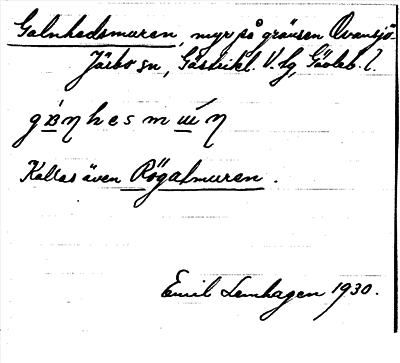 Galnhedsmuren, myr på gränsen Ovansjö-
Järbo sn, Gästrikl. V. tg, Gävleb. l.
Kallas även Rögalmuren.
Emil Lemhagen 1930.